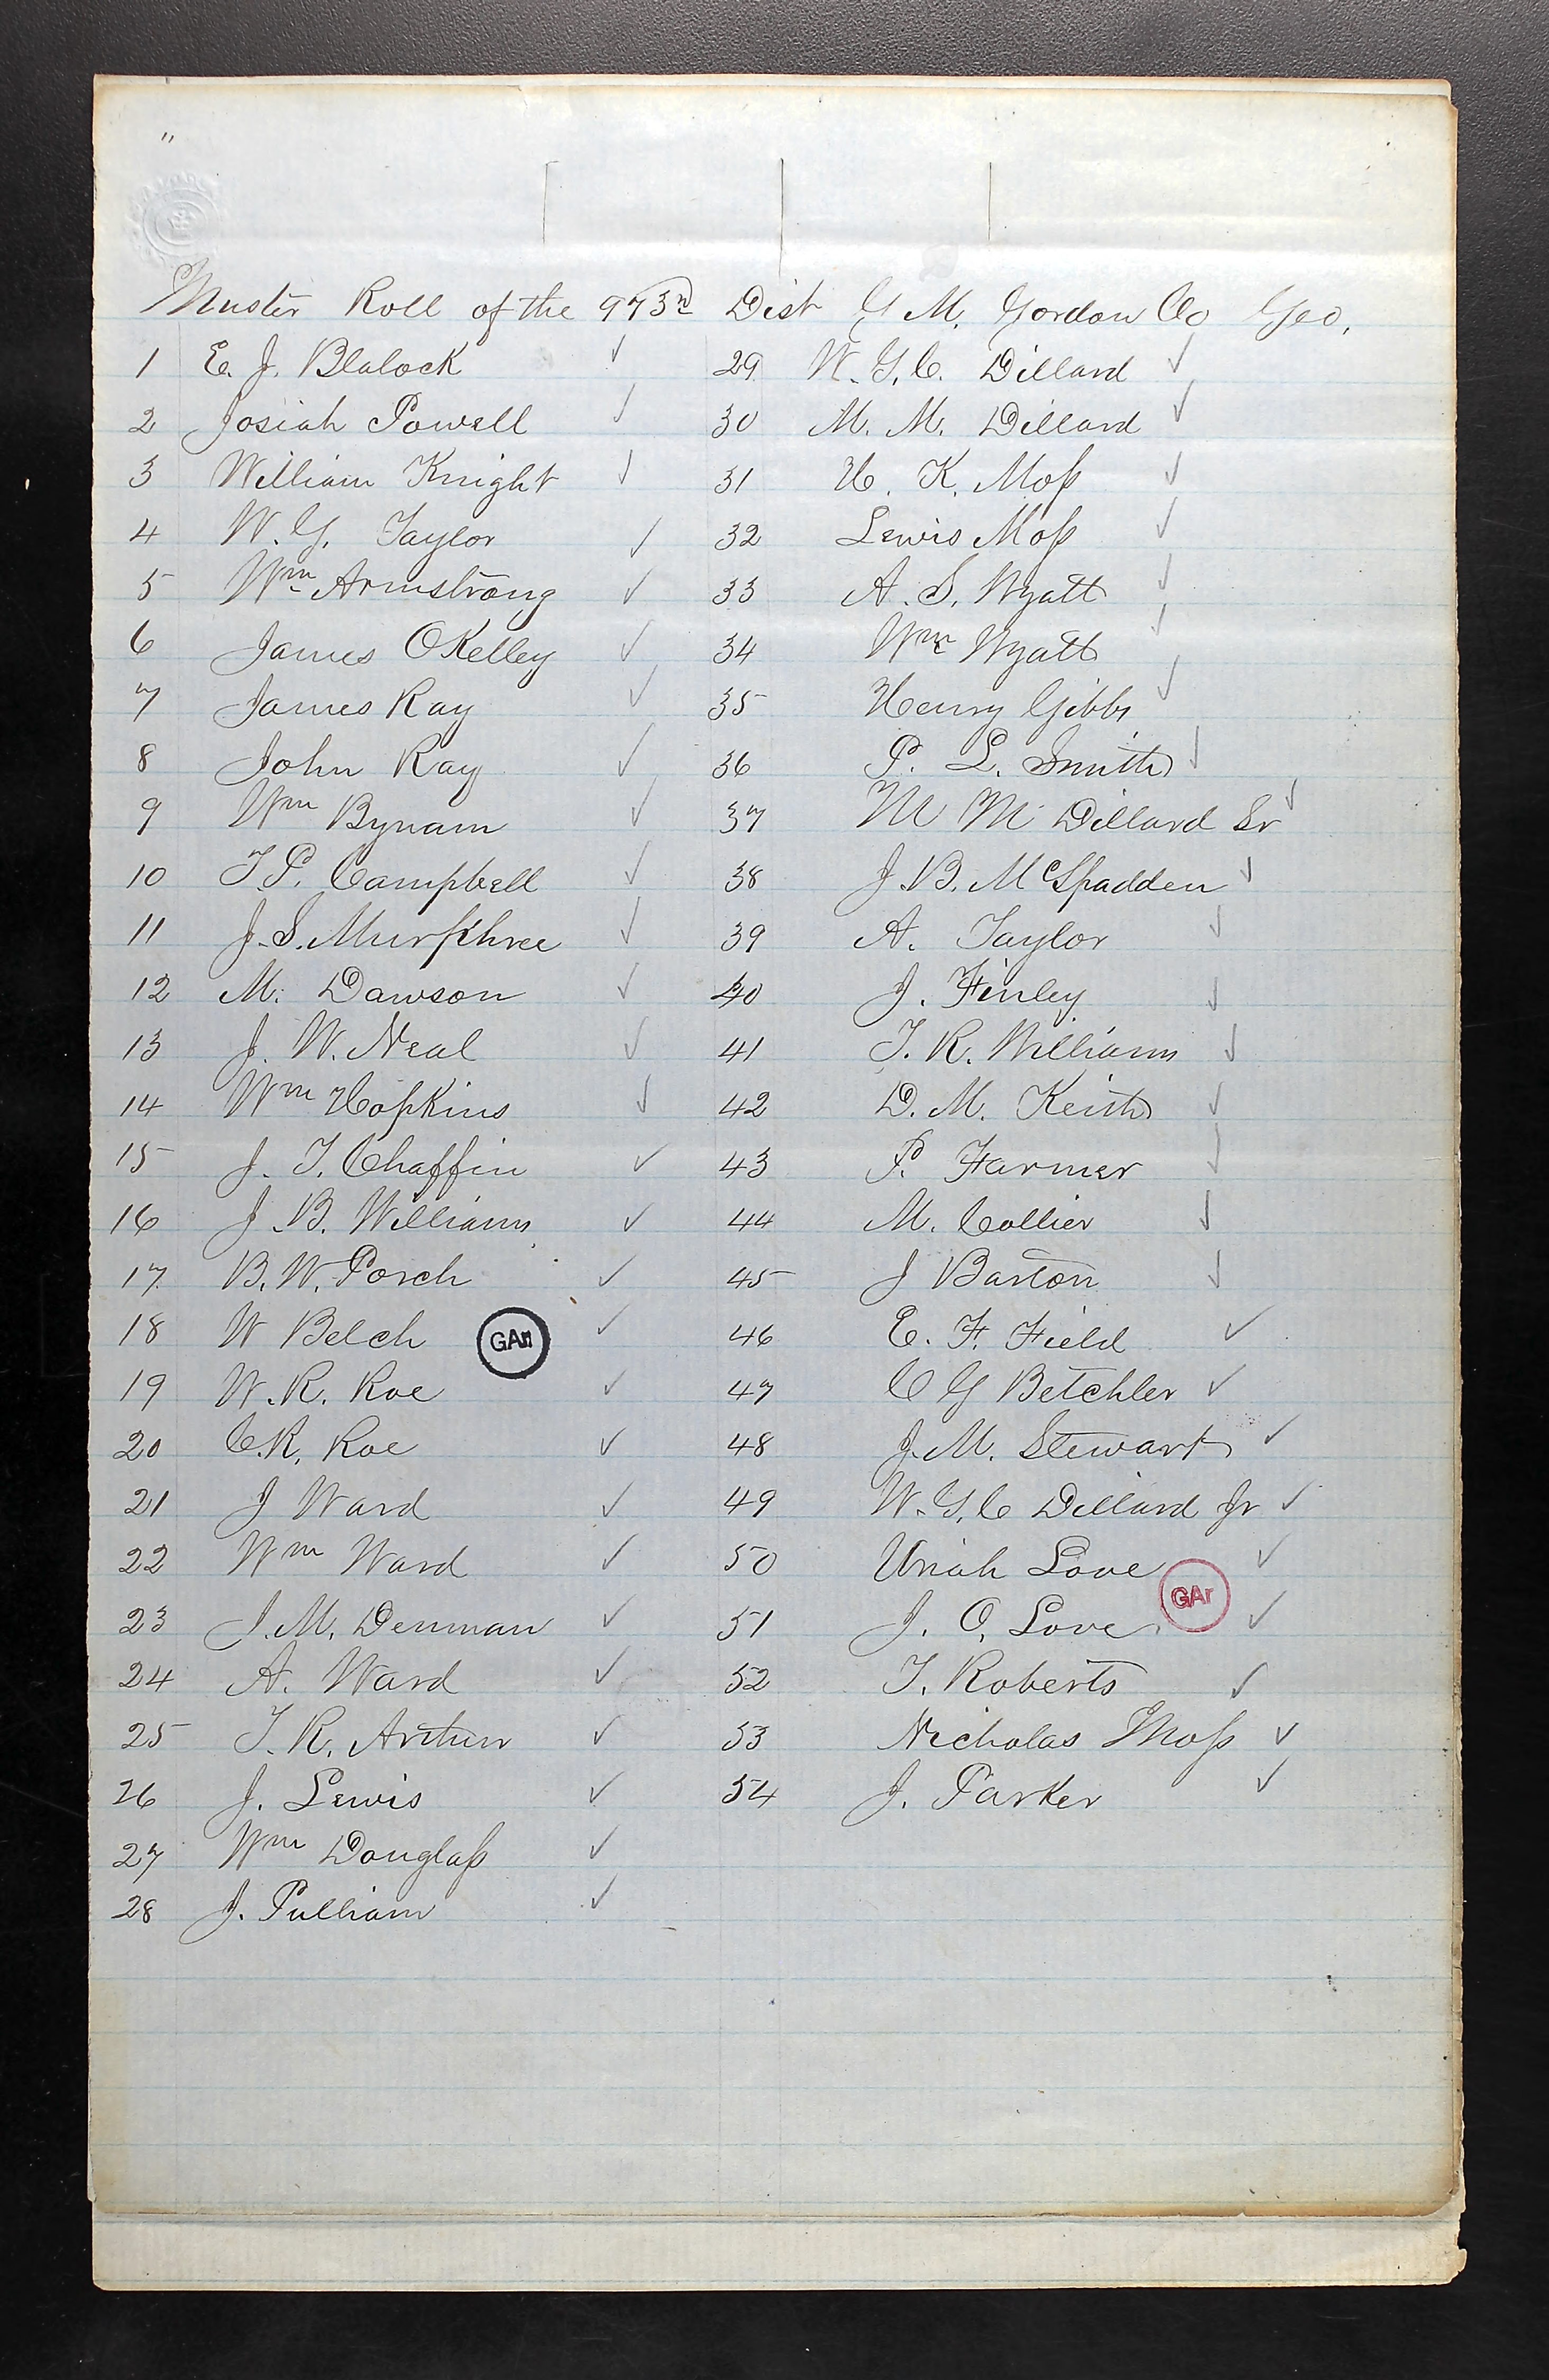 Muster Roll of the 973rd Dist G M. Gordon Co Geo.
1 E. J. Blalock ✓
2 Josiah Powell ✓
3 William Knight ✓
4 W. G. Taylor ✓
5 Wm Armstrong ✓
6 James OKelley ✓
7 James Ray ✓
8 John Ray ✓
9 Wm Bynam ✓
10 T. P. Campbell ✓
11 J. S. Murphree ✓
12 M. Dawson ✓
13 J. W. Neal ✓
14 Wm Hopkins ✓
15 J. T. Chaffin ✓
16 J. B. Williams ✓
17 B. W. Porch ✓
18 W Belch ✓
GAr
19 W. R. Roe ✓
20 C. R. Roe ✓
21 J Ward ✓
22 Wm Ward ✓
23 J. M. Denman ✓
24 A. Ward ✓
25 T. R. Arthur ✓
26 J. Lewis ✓
27 Wm Douglass ✓
28 J. Pulliam ✓
29 W. G. C. Dillard ✓
30 M. M. Dillard ✓
31 H. K. Moss ✓
32 Lewis Moss ✓
33 A. S. Wyatt ✓
34 Wm Wyatt ✓
35 Henry Gibbs ✓
36 P. L. Smith ✓
37 M M Dillard Sr ✓
38 J. B. McSpadden ✓
39 A. Taylor ✓
40 J. Finley ✓
41 T. R. Williams ✓
42 D. M. Keith ✓
43 P. Farmer ✓
44 M. Collier ✓
45 J Barton ✓
46 E. F. Field ✓
47 C G Betchler ✓
48 J. M. Stewart ✓
49 W. G. C Dillard Jr ✓
50 Uriah Love ✓
GAr
51 J. O. Love ✓
52 T. Roberts ✓
53 Nicholas Moss ✓
54 J. Parker ✓